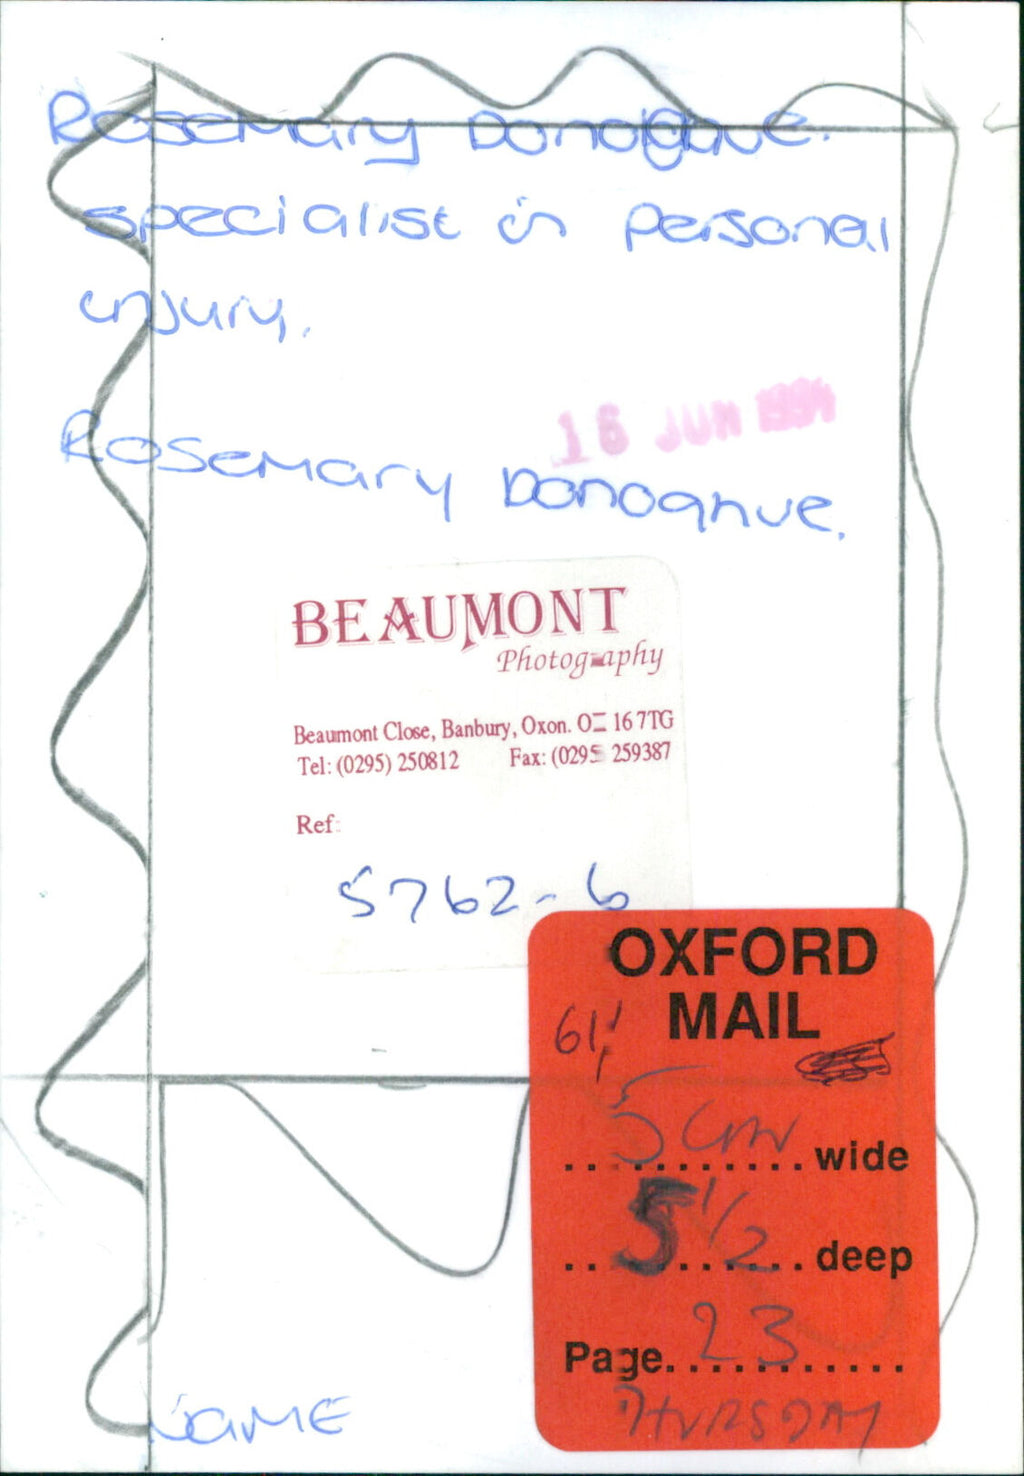 Rosemary Donoghue.
specialist in personal
injury.
16 JUN 1994
Rosemary Donoghue.
BEAUMONT
Photography
Beaumont Close, Banbury, Oxon. OX 16 7TG
Tel: (0295) 250812 Fax: (0295 259387
Ref:
5762-6
OXFORD
MAIL
61
5 cm wide
5 1/2 deep
Page 23
THURSDAY
NAME